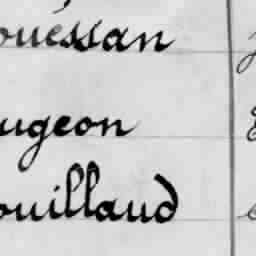 ouessan
ugeon
ouillaud